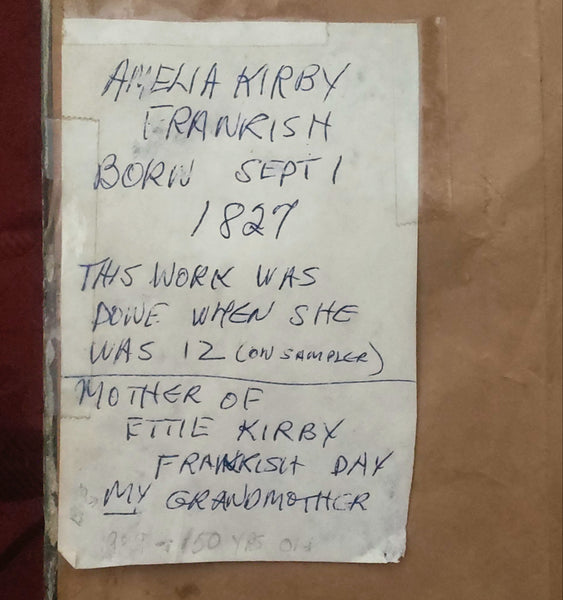 AMELIA KIRBY
FRANKISH
BORN SEPT 1
1827
THIS WORK WAS
DONE WHEN SHE
WAS 12 (ON SAMPLER)
MOTHER OF
ETTIE KIRBY
FRANKISH DAY
MY GRANDMOTHER
150 YRS OLD